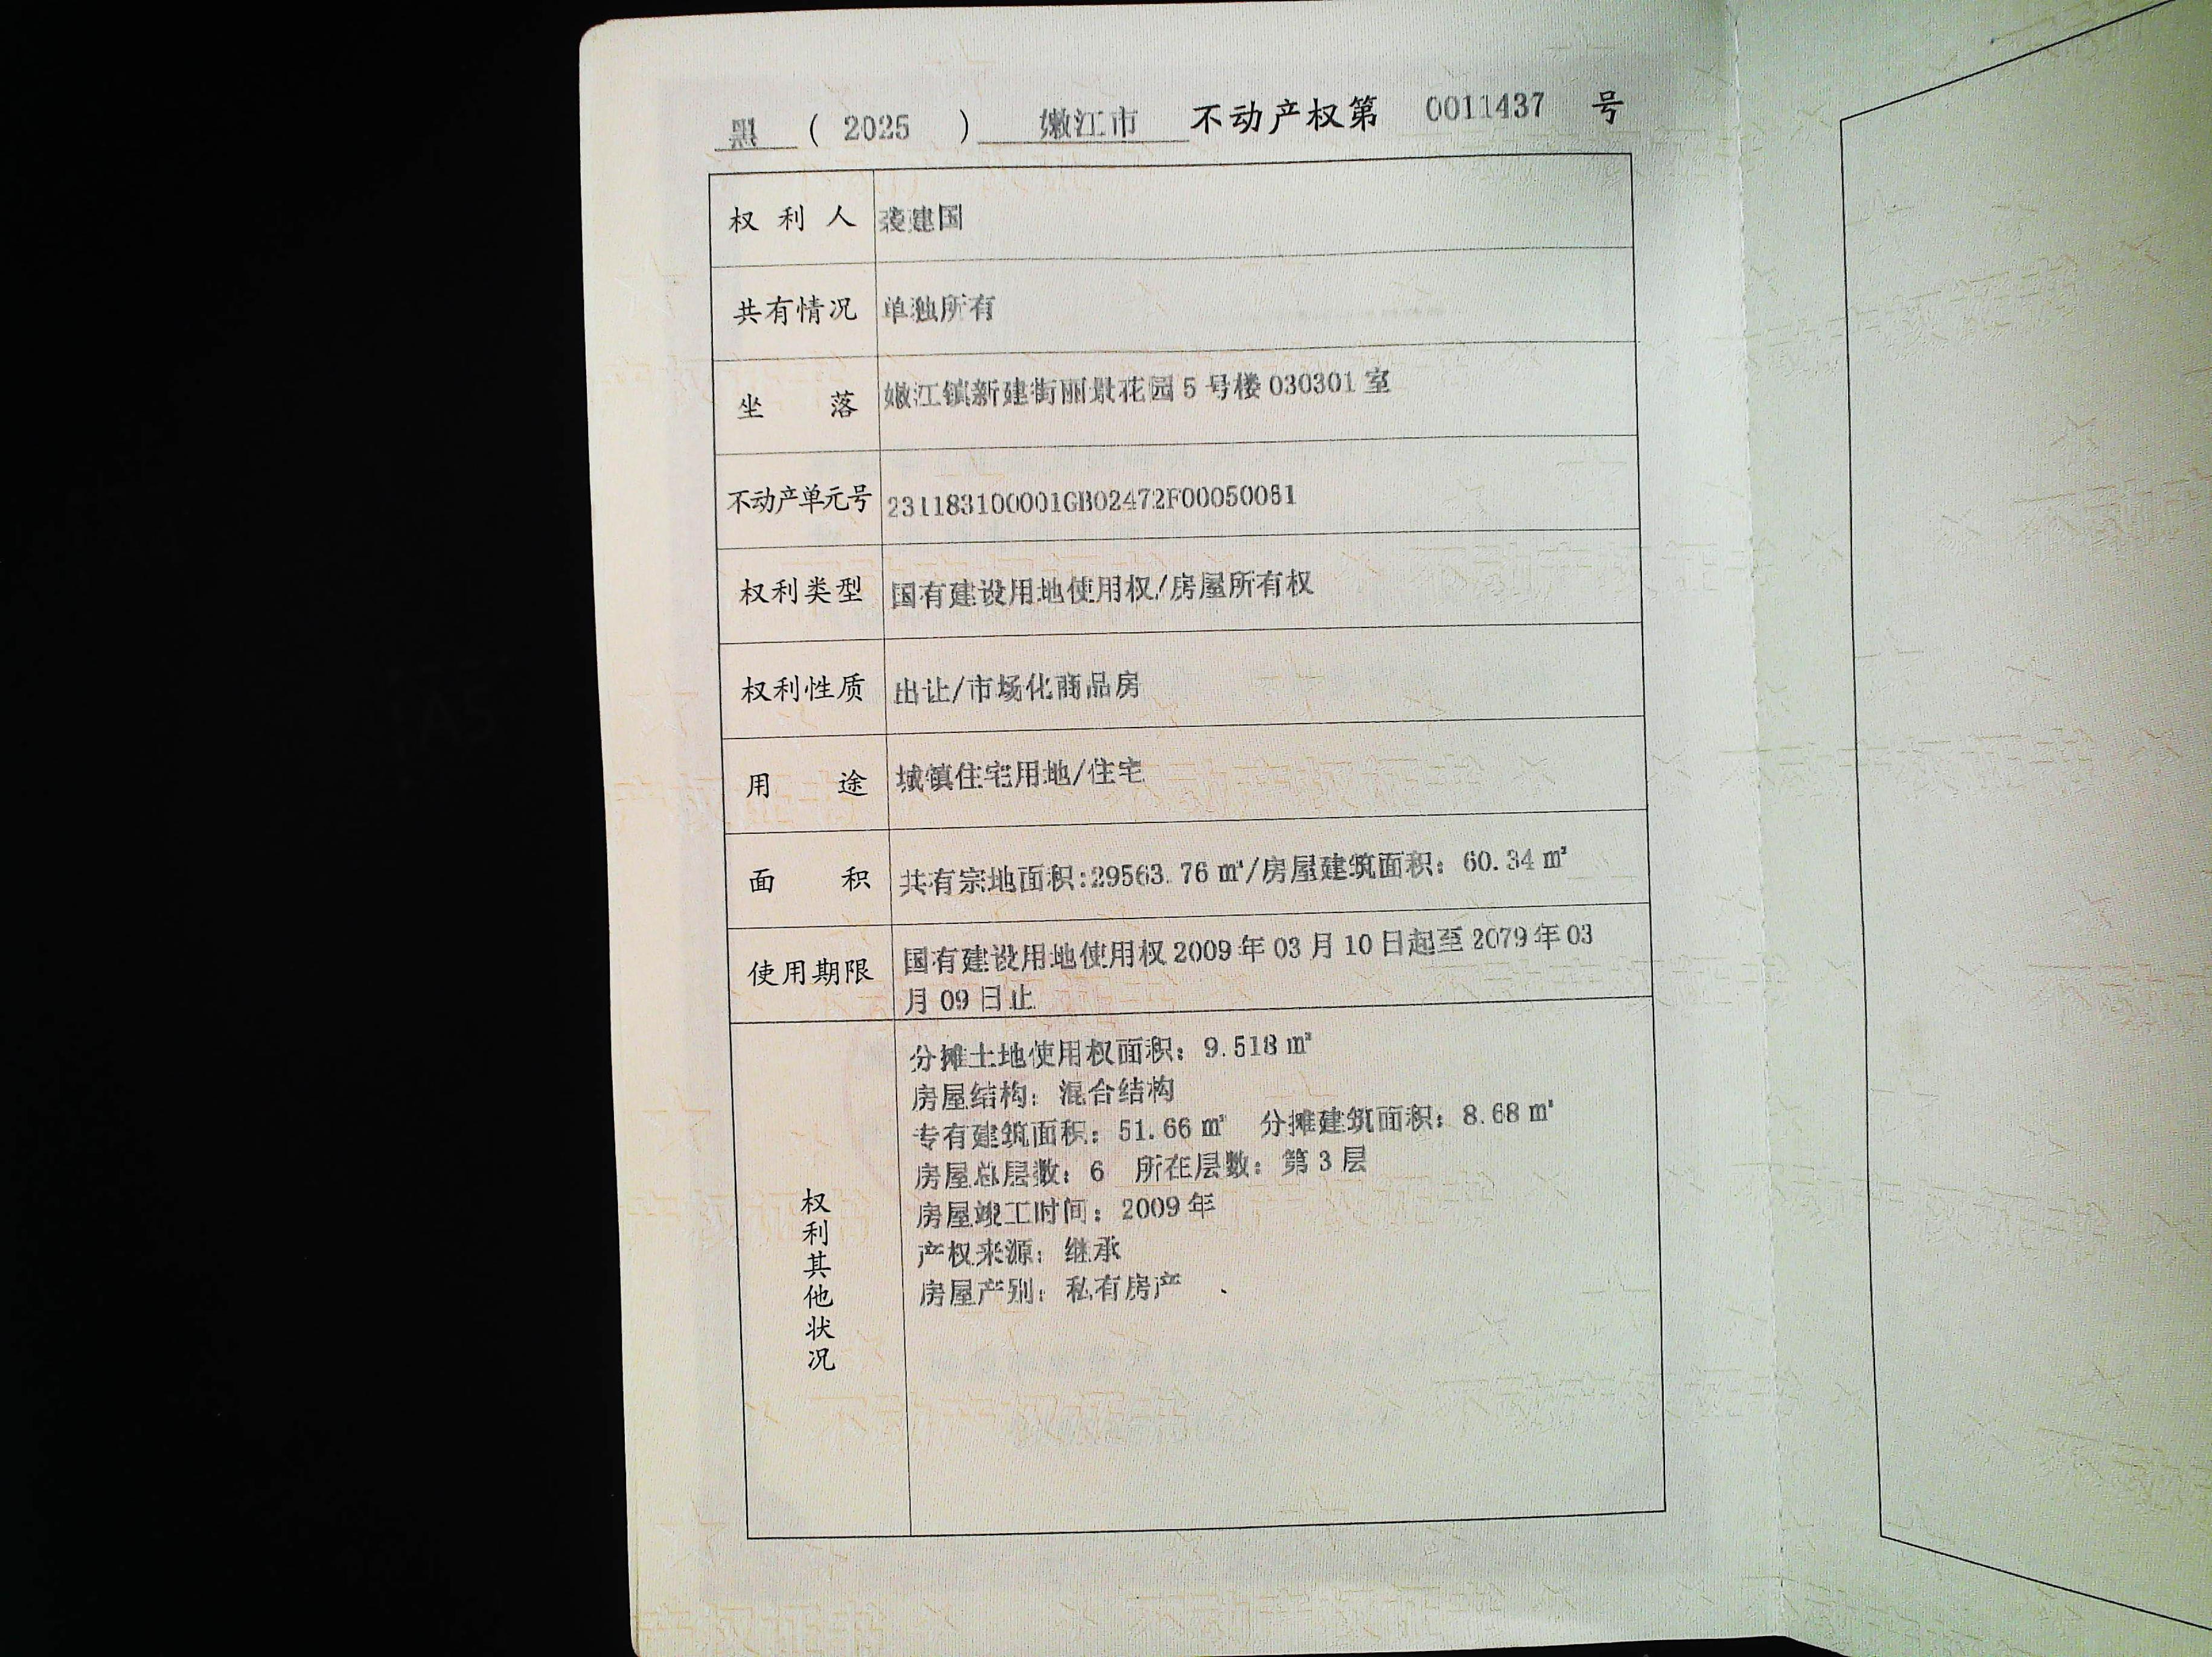 黑 ( 2025 ) 嫩江市 不动产权第 0011437 号
权利人 裴建国
共有情况 单独所有
坐落 嫩江镇新建街丽景花园 5 号楼 030301 室
不动产单元号 231183100001GB02472F00050061
权利类型 国有建设用地使用权/房屋所有权
权利性质 出让/市场化商品房
用途 城镇住宅用地/住宅
面积 共有宗地面积:29563.76 ㎡/房屋建筑面积: 60.34 ㎡
使用期限 国有建设用地使用权 2009 年 03 月 10 日起至 2079 年 03
月 09 日止
权利其他状况
分摊土地使用权面积: 9.518 ㎡
房屋结构: 混合结构
专有建筑面积: 51.66 ㎡ 分摊建筑面积: 8.68 ㎡
房屋总层数: 6 所在层数: 第 3 层
房屋竣工时间: 2009 年
产权来源: 继承
房屋产别: 私有房产